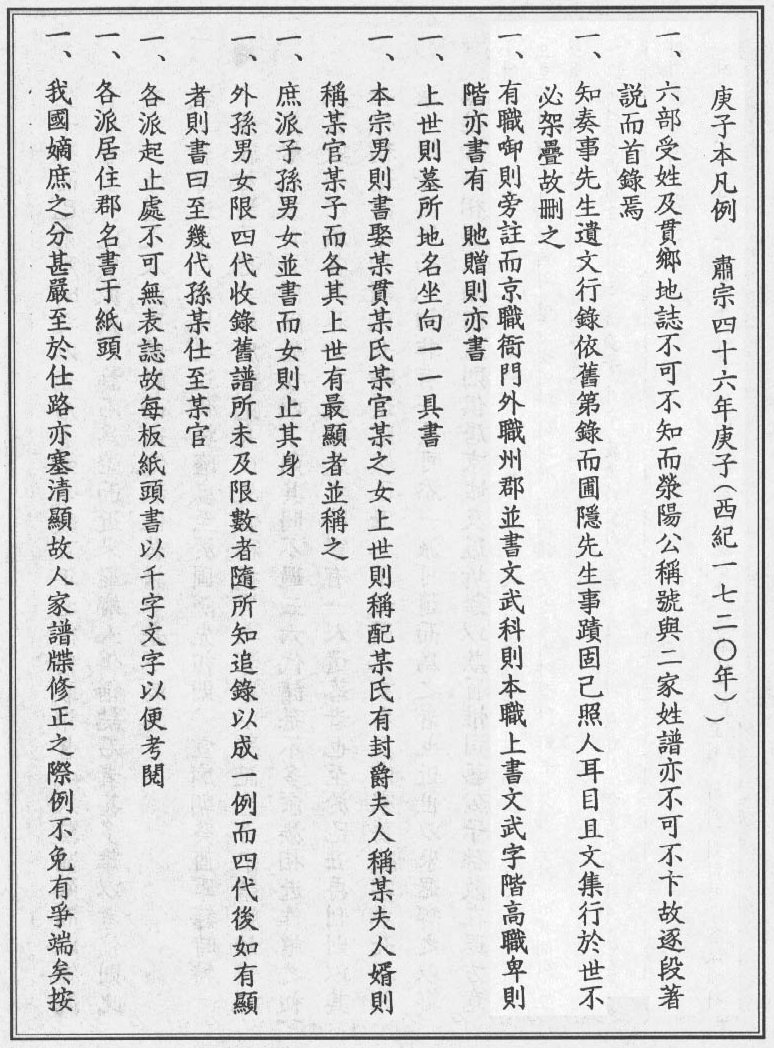 庚子本凡例　肅宗四十六年庚子(西紀一七二〇年))
一、六部受姓及貫鄉地誌不可不知而滎陽公稱號與二家姓譜亦不可不卞故逐段著
說而首錄焉
一、知奏事先生遺文行錄依舊第錄而圃隱先生事蹟固己照人耳目且文集行於世不
必架疊故刪之
一、有職啣則旁註而京職衙門外職州郡並書文武科則本職上書文武字階高職卑則
階亦書有　貤贈則亦書
一、上世則墓所地名坐向一一具書
一、本宗男則書娶某貫某氏某官某之女上世則稱配某氏有封爵夫人稱某夫人婿則
稱某官某子而各其上世有最顯者並稱之
一、庶派子孫男女並書而女則止其身
一、外孫男女限四代收錄舊譜所未及限數者隨所知追錄以成一例而四代後如有顯
者則書曰至幾代孫某仕至某官
一、各派起止處不可無表誌故每板紙頭書以千字文字以便考閱
一、各派居住郡名書于紙頭
一、我國嫡庶之分甚嚴至於仕路亦塞清顯故人家譜牒修正之際例不免有爭端矣按